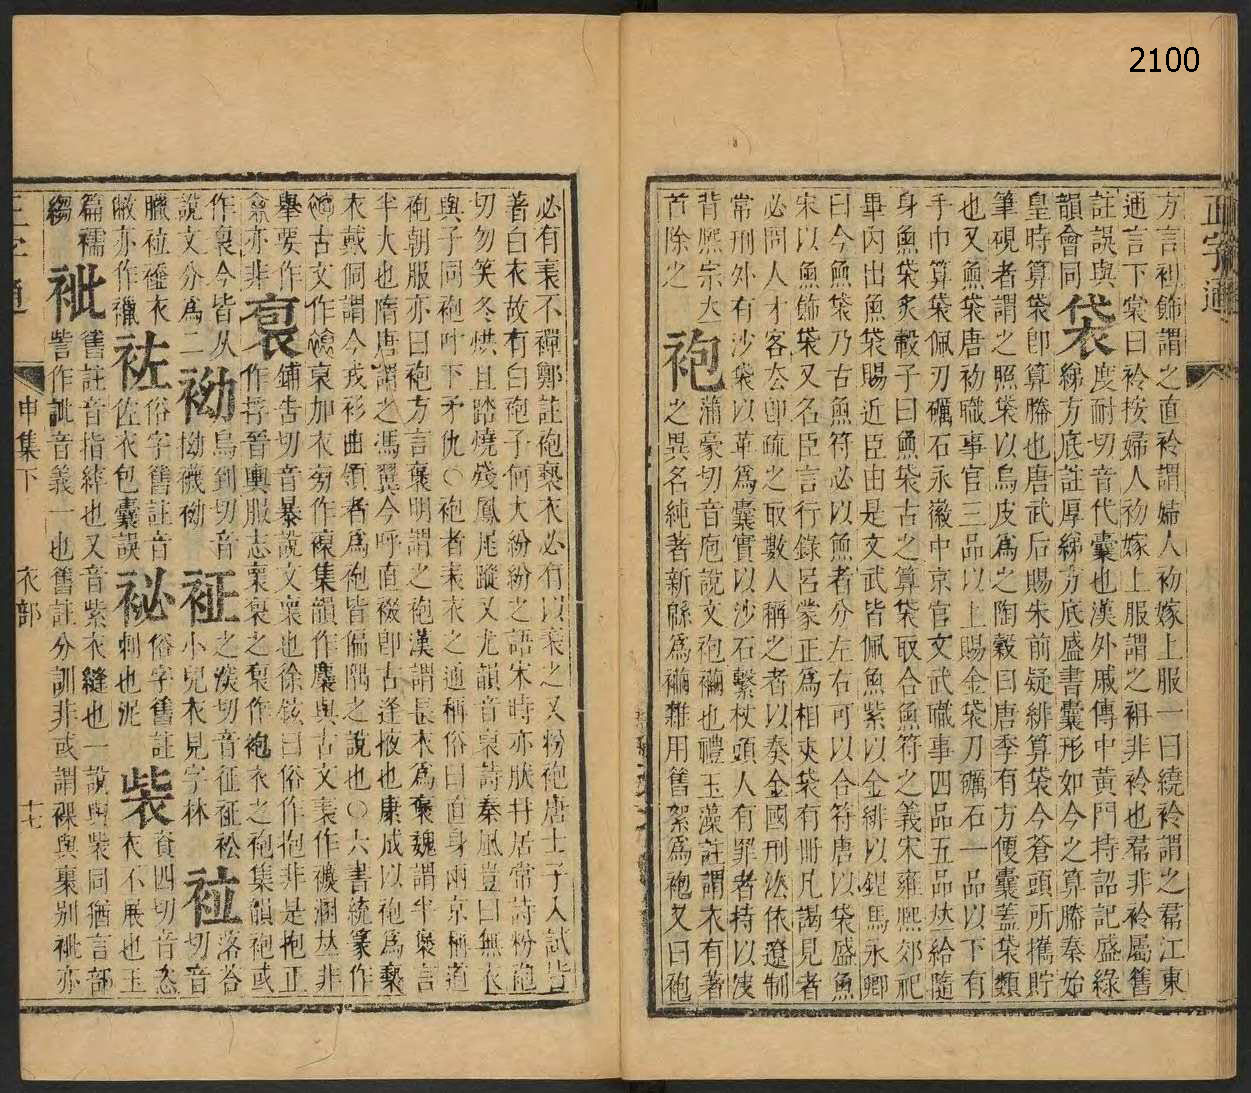 2100
正字通
方言袒飾謂之直衿謂婦人初嫁上服一曰繞衿謂之帬江東
通言下裳曰衿按婦人初嫁上服謂之袡非衿也帬非衿屬舊
註誤與
韻會同
袋
度耐切音代囊也漢外戚傳中黃門持詔記盛綠
綈方底註厚綈方底盛書囊形如今之算幐秦始
皇時算袋卽算幐也唐武后賜朱前疑緋算袋今蒼頭所攜貯
筆硯者謂之照袋以烏皮爲之陶穀曰唐季有方便囊蓋袋類
也又魚袋唐初職事官三品以上賜金袋刀礪石一品以下有
手巾算袋佩刀礪石永徽中京官文武職事四品五品𠀤給隨
身魚袋炙轂子曰魚袋古之算袋取合魚符之義宋雍熙郊祀
畢內出魚袋賜近臣由是文武皆佩魚紫以金緋以銀馬永卿
曰今魚袋乃古魚符必以魚者分左右可以合符唐以袋盛魚
宋以魚飾袋又名臣言行錄呂蒙正爲相夾袋有冊凡謁見者
必問人才客去卽疏之取數人稱之者以奏金國刑法依遼制
常刑外有沙袋以革爲囊實以沙石繫杖頭人有罪者持以決
背熙宗大
首除之
袍
蒲豪切音庖說文袍襺也禮玉藻註謂衣有著
之異名純著新緜爲襺雜用舊絮爲袍又曰袍
必有表不襌鄭註袍褻衣必有以表之又粉袍唐士子入試皆
著白衣故有白袍子何大紛紛之語宋時亦肰井居常詩粉袍
切勿笑冬烘且踏燒殘鳳尾蹤又尤韻音裒詩秦風豈曰無衣
與子同袍叶下矛仇○袍者表衣之通稱俗曰直身兩京稱道
袍朝服亦曰袍方言褒明謂之袍漢謂長衣爲褒魏謂半袍言
半大也隋唐謂之馮翼今呼直裰卽古逢掖也康成以袍爲褻
衣戴侗謂今戎衫曲領者爲袍皆偏隅之說也○六書統篆作
古文作裒加衣旁作集韻作與古文表作𠀤非
袌
薄皓切音暴說文褱也徐鉉曰俗作抱非是抱正
作捊晉輿服志袌之袌作袍衣之袍集韻袍或
作袌今皆从
說文分爲二
袎
烏到切音
拗襪袎
袔
之
小兒衣見字林
䘳
落合
切音
臘
衣
袏
俗字舊註音
佐衣包囊誤
祕
俗字舊註
刺也泥
裻
資四切音恣
衣不展也玉
篇襦
𧙁
舊註音指䊼也又音紫衣縫也一說與裝同猶言部
訾作訿音義一也舊註分訓非或謂裸與裹别𧙁亦
正字通
申集下
衣部
十七